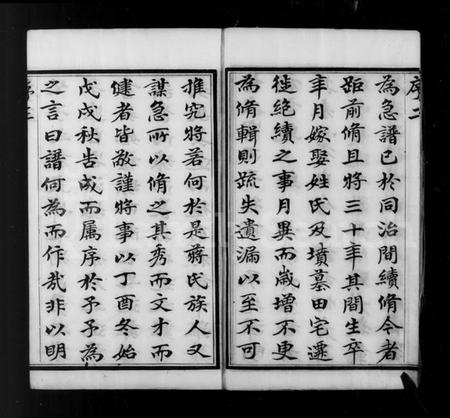 序二
為急譜已於同治間續脩今者
距前脩且將三十年其間生卒
年月嫁娶姓氏及墳墓田宅遷
徙絶續之事月異而歲增不更
為脩輯則疏失遺漏以至不可
推究將若何於是蔣氏族人又
謀急所以脩之其秀而文才而
健者皆敬謹將事以丁酉冬始
戊戌秋告成而属序於予予為
之言曰譜何為而作哉非以明